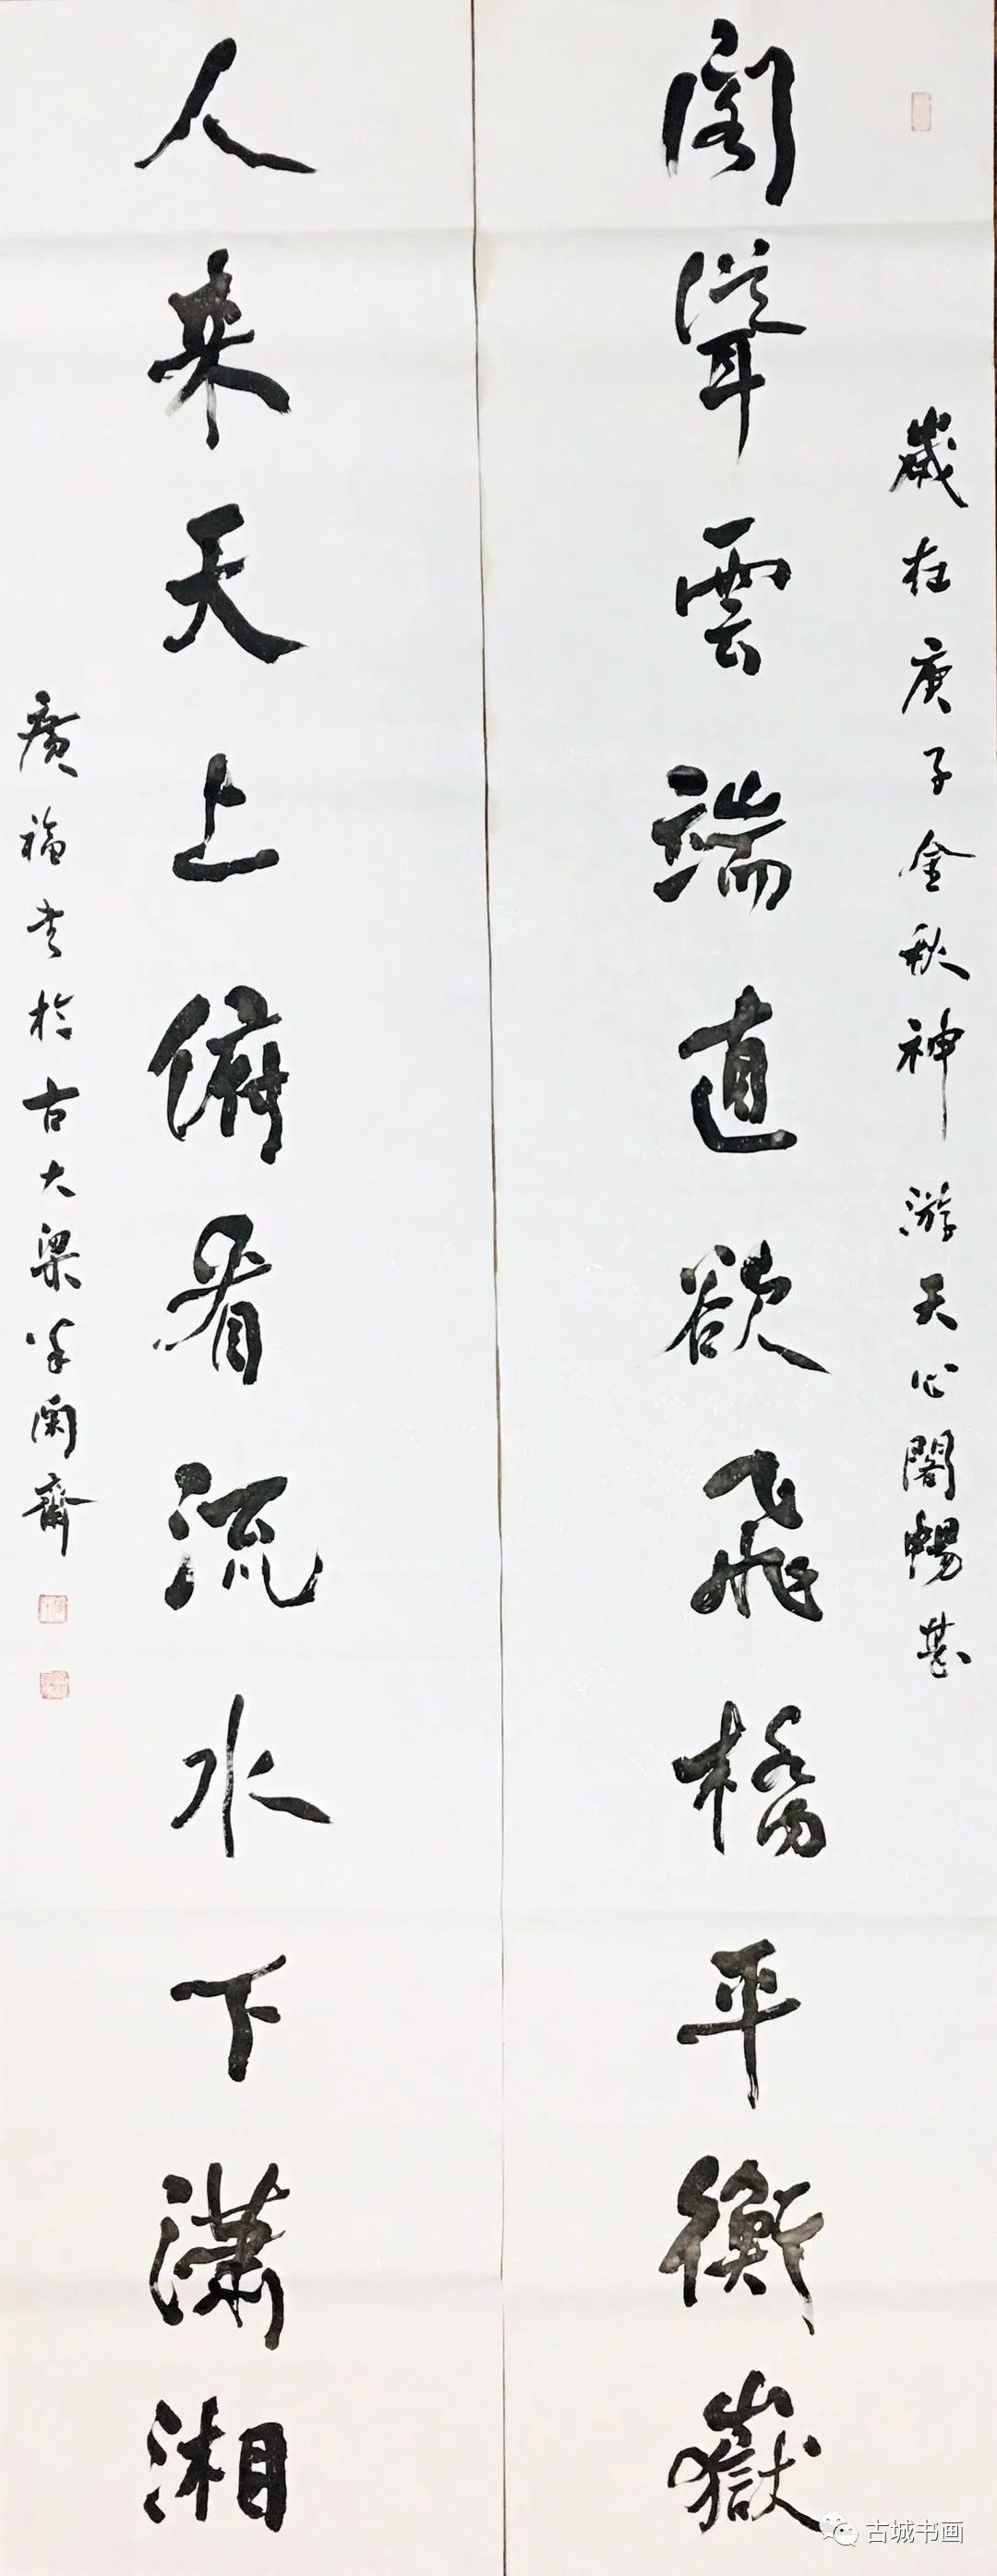 歲在庚子金秋神游天心閣暢甚
閣聳雲端直欲飛橋平衡嶽
人来天上俯看流水下瀟湘
廣福书於古大梁半闲齋
古城书画